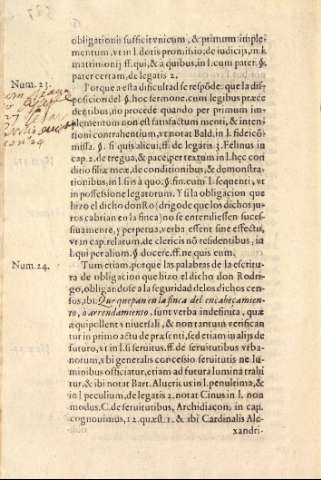 obligationi sufficit vnicum, & primum imple-
mentum, vt in l. dotis promissio, de iudicijs, in k
matrimonij ff. qui, & a quibus, in l. cum pater. §.
pater certam, de legatis 2.
Num. 23.
Porque a esta dificultad se respōde: que la dis-
posicion del §. hoc sermone, cum legibus præce
dētibus, no procede quando per primum im-
plementum non est satisfactum menti, & inten-
tioni contrahentium, vt notat Bald. in l. fideicō-
missa. §. si quis alicui, ff. de legatis 3. Felinus in
cap. 2. de tregua, & pace, per textum in l. hęc con
ditio filiæ meæ, de conditionibus, & demonstra-
tionibus, in l. si n à quo, §. fin. cum l. sequenti, vt
in possessione legatorum. Y si la obligacion que
hizo el dicho don Rodrigo de que los dichos ju-
ros cabrian en la finca) no se entendiessen suces-
siuamente, y perpetua, verba essent sine effectu,
vt in cap. relatum, de clericis nō residentibus, in
l. qui peralium. §. docere. ff. ne quis eum,
Num. 24.
Tum etiam, porque las palabras de la escritu
ra de obligacion que hizo el dicho don Rodri-
go, obligandose a la seguridad de los dichos cen-
sos, ibi: Que quepan en la finca del encabeçamien-
to, ò arrendamiento, sunt verba indefinita, quæ
æquipollent vniuersali, & non tantum verifican
tur in primo actu de præsenti, sed etiam in alijs de
futuro, vt in l. si seruitus. ff. de seruitutibus vrba-
norum, vbi generalis concessio seruitutis ne lu-
minibus officiatur, etiam ad futura lumina trahi
tur, & ibi notat Bart. Aluericus in l. penultima, &
in l. peculium, de legatis 2. notat Cinus in l. non
modus. C. de seruitutibus, Archidiacon. in cap.
cognouimus, 12. quæst. 1. & ibi Cardinalis Ale-
xandri-